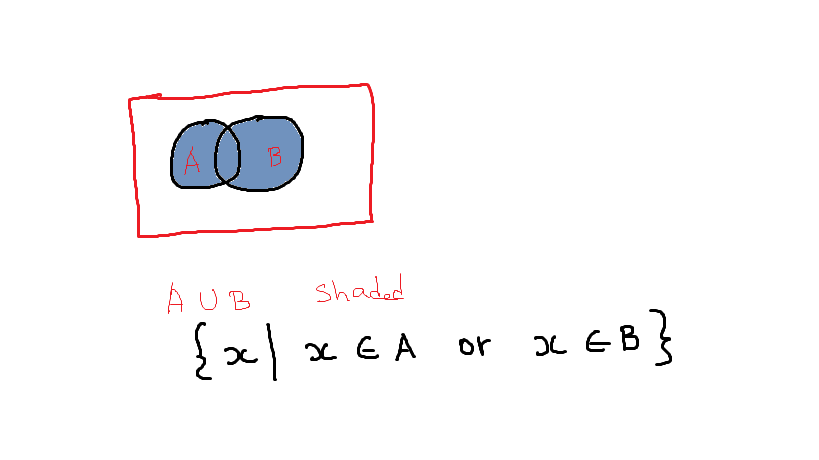 A B
A ∪ B shaded
{ x | x ∈ A or x ∈ B }